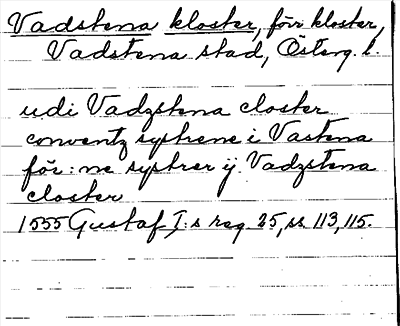 Vadstena kloster, förr kloster,
Vadstena stad, Österg. l.
udi Vadzstena closter
conventz systrene i Vastena
för:ne systrer ij Vadzstena
closter
1555 Gustaf I:s reg. 25, ss. 113, 115.